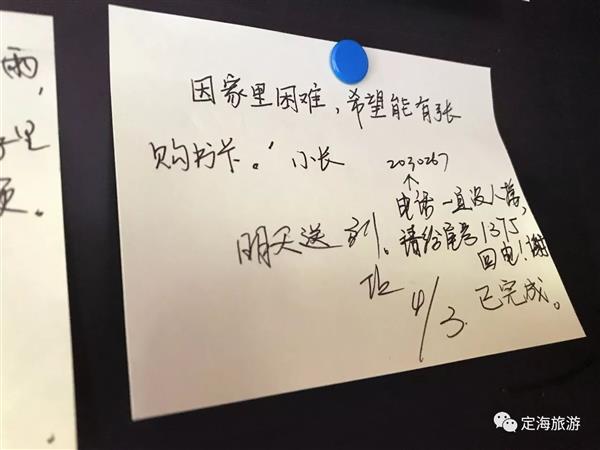 雨,
里
因家里困难,希望能有张
购书卡。 小长 2030267
↑
电话一直没人接,
明天送到。请给尾号1375
回电!谢
4/3 已完成。
定海旅游